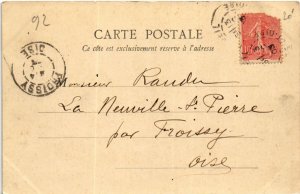 92
CARTE POSTALE
Ce côté est exclusivement réservé à l'adresse
OISE
FROISSY
Monsieur Randu
La Neuville St Pierre
par Froissy
Oise